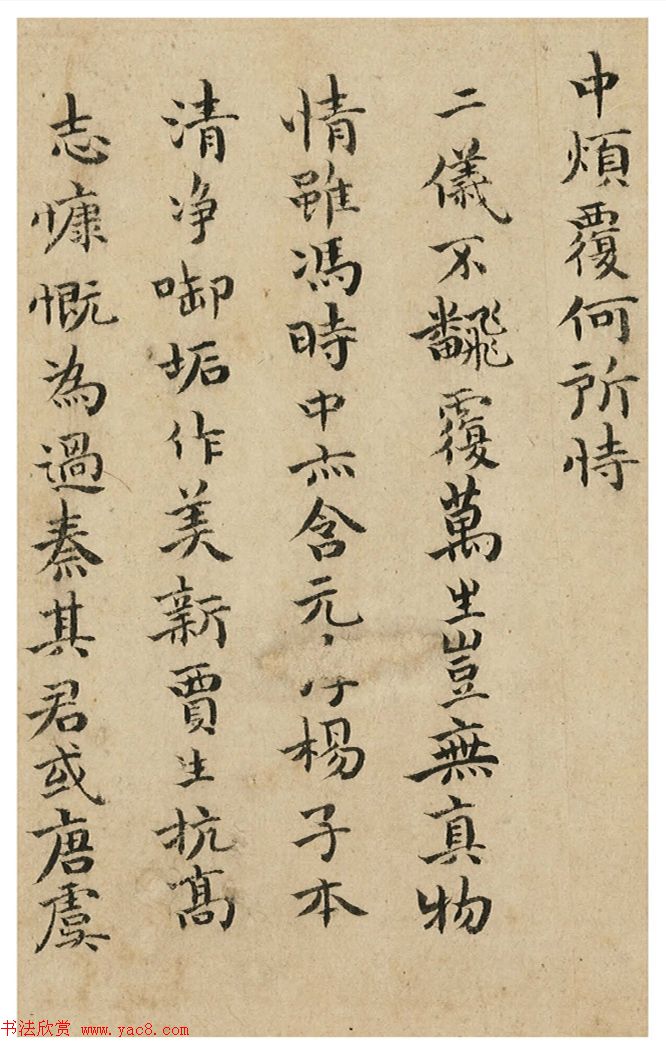 中煩覆何所恃
二儀不飜覆萬生豈無真物
情雖馮時中亦含元楊子本
清净啣垢作美新賈生抗高
志慷慨為過秦其君或唐虞
书法欣赏 www.yac8.com